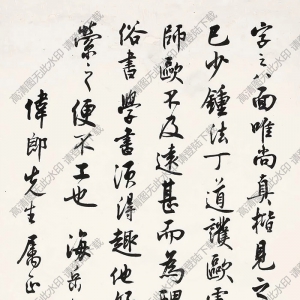 字之八面唯尚真楷見之
已少鍾法丁道護歐虞
師歐不及遠甚而為醜
俗書學書須得趣他好
縈之便不工也 海岳
偉郎先生屬正